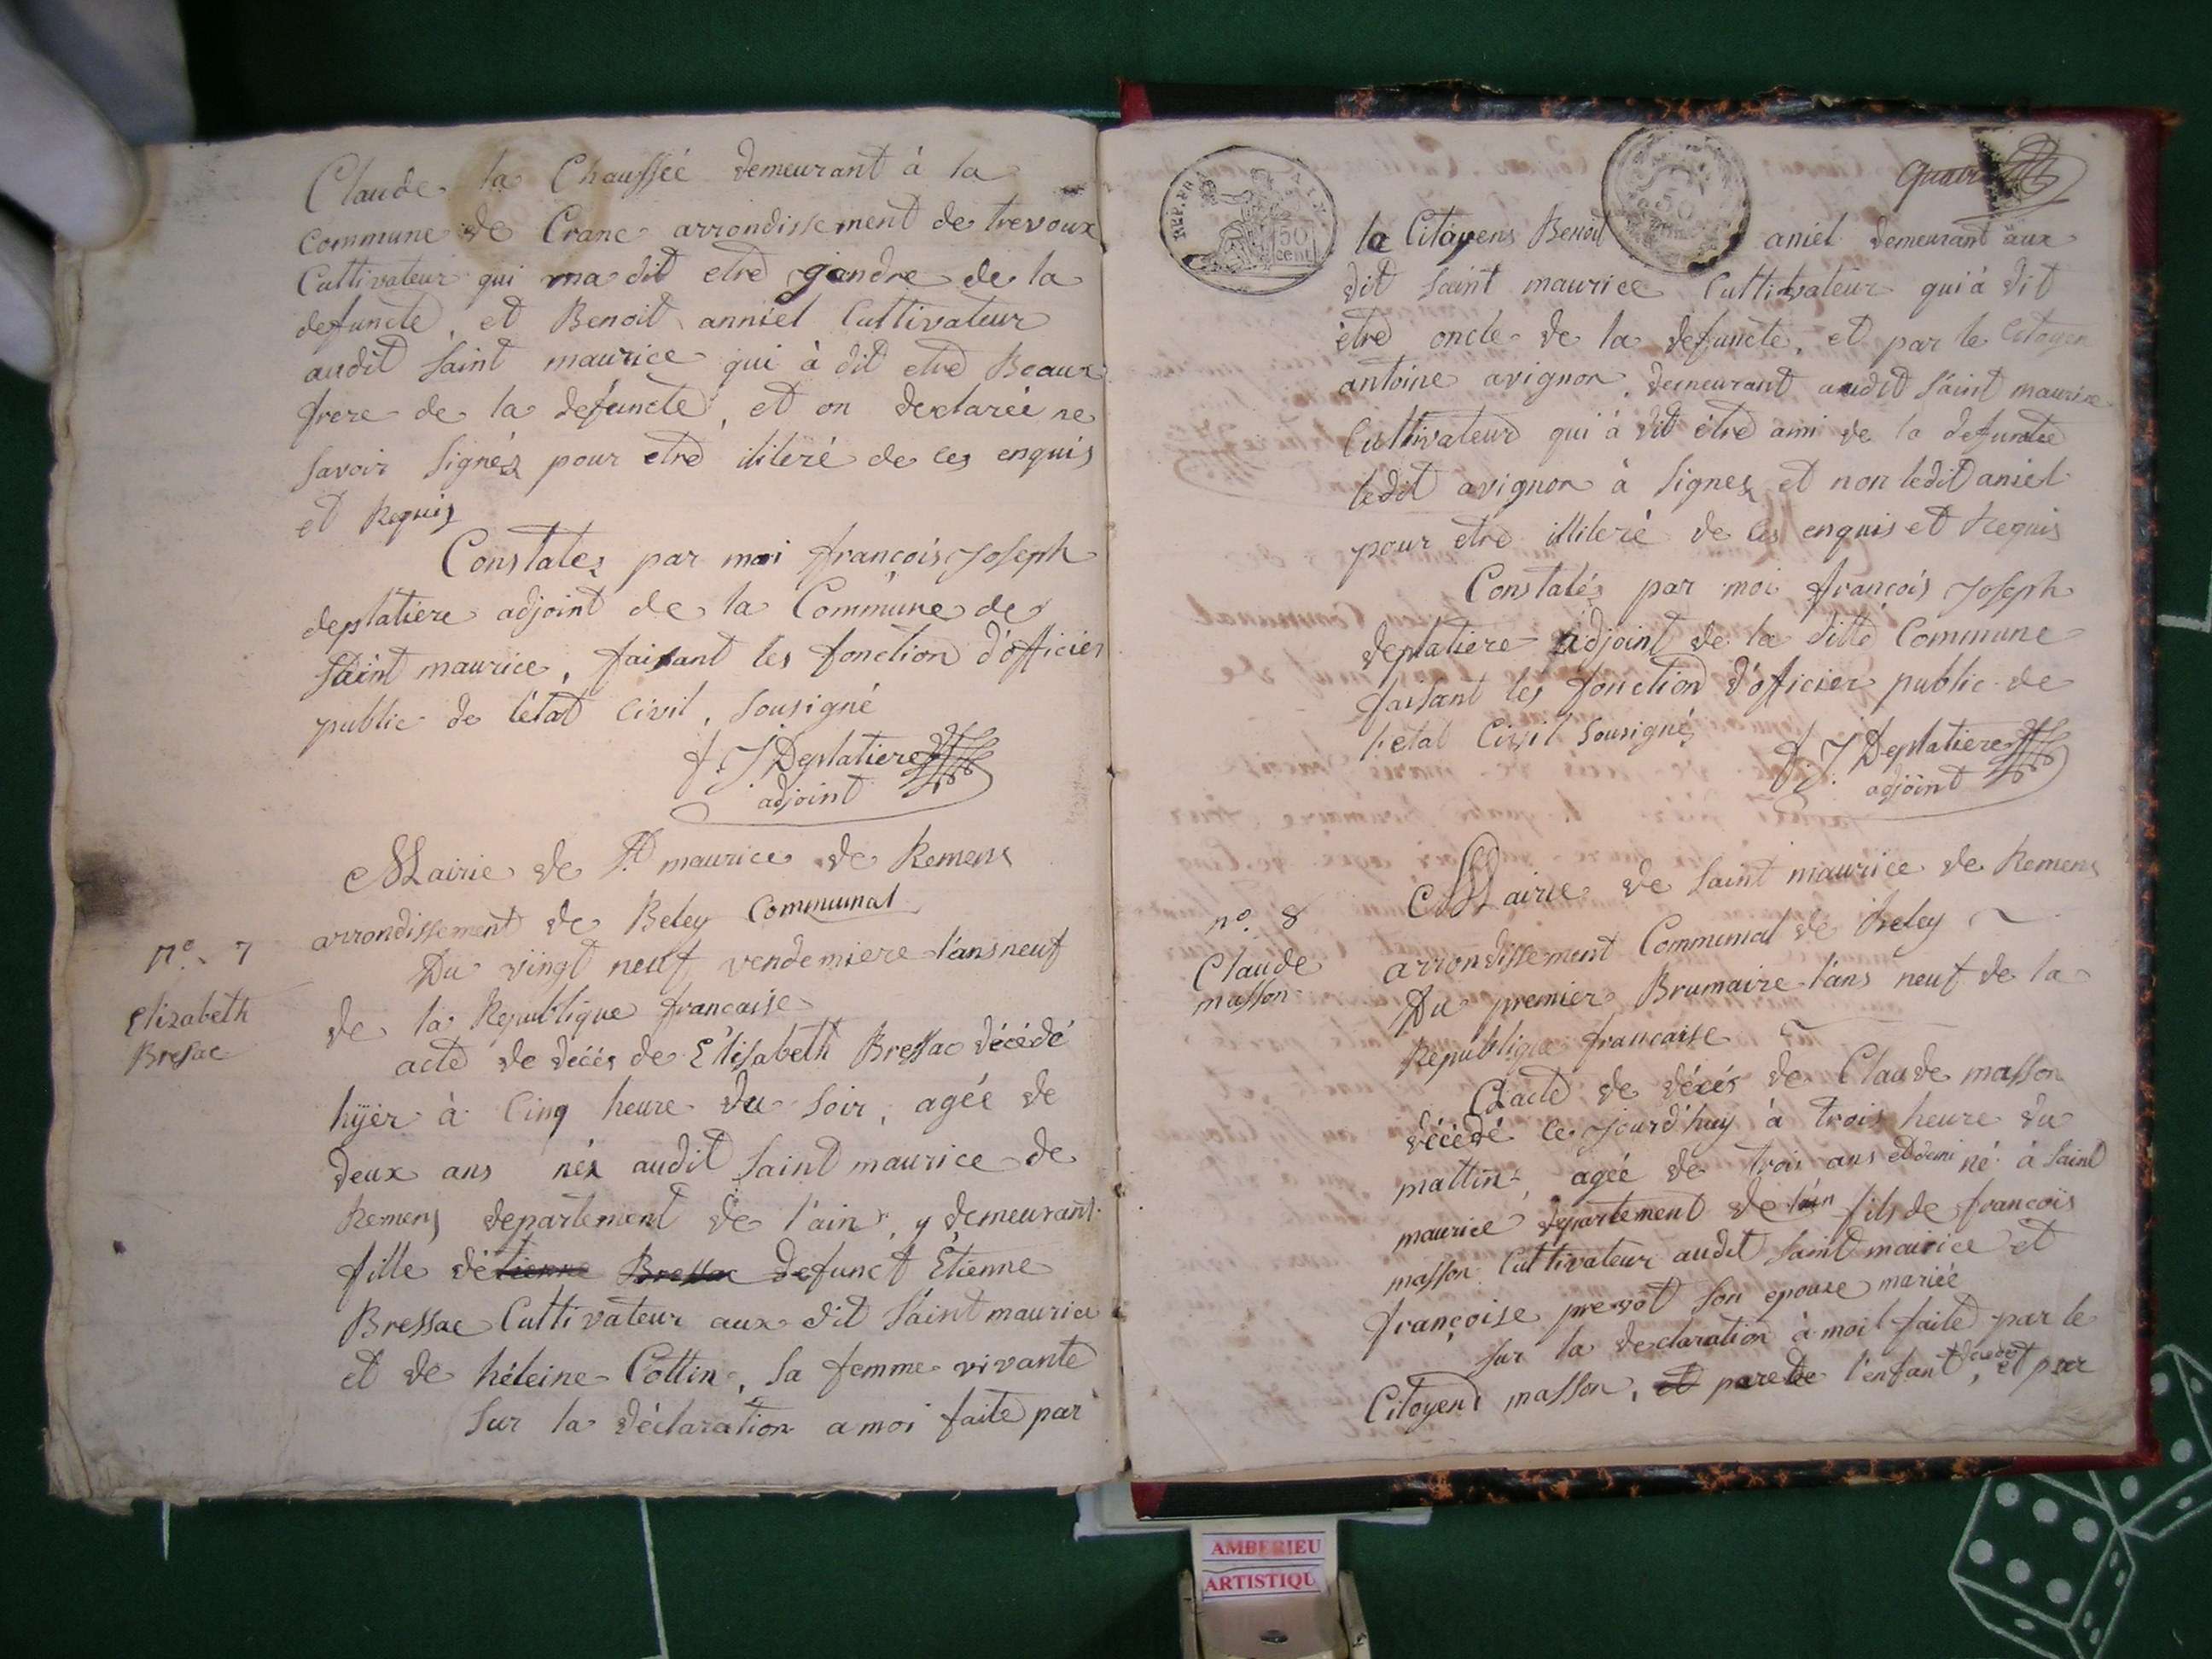 Claude la Chaussée demeurant à la
commune de Crane arrondissement de trevoux
Cultivateur qui ma dit etre gendre de la
defuncte, et Benoit anniel Cultivateur
audit Saint maurice qui à dit etre Beaux
frere de la defuncte, et on declarée ne
savoir signés pour etre iliteré de ces enquis
et Requis
Constatés par moi françois Joseph
deplatiere adjoint de la Commune de
Saint maurice, faisant les fonction d'officier
public de l'état Civil, sousigné
f. J Deplatiere
adjoint
Mairie de St. maurice de Remens
arrondissement de Beley Communal
n°. 7
Elizabeth
Bressac
Du vingt neuf vendemiere l'ans neuf
de la Republique francaise
acte de décés de Elisabeth Bressac décédé
hÿer à Cinq heure du soir, agée de
deux ans née audit Saint maurice de
Remens departement de l'ain, y demeurant
fille de tienne Bressac defunct Etienne
Bressac Cultivateur aux dit Saint maurice
et de héleine Cottin, sa femme vivante
Sur la déclaration a moi faite par
REP. FRA
50
cent
50
Quatre
le Citoyens Benoit aniel demeurant aux
dit Saint maurice Cultivateur qui à dit
être oncle de la defuncte, et par le Citoyen
antoine avignon, demeurant audit Saint maurice
Cultivateur qui à dit être ami de la defuncte
ledit avignon à signer et non ledit aniel
pour etre illiteré de ces enquis et Requis
Constatés par moi françois Joseph
deplatiere adjoint de la ditte Commune
faisant les fonction d'officier public de
l'etat Civil sousignés
f. J. Deplatiere
adjoint
n°. 8
Claude
masson
Mairie de Saint maurice de Remens
arrondissement Communal de Beley
Du premier Brumaire l'ans neuf de la
Republique francaise
acte de décés de Claude masson
décédé ce jourd'huy à trois heure du
mattin agée de trois ans et demi né à Saint
maurice departement de l'ain fils de françois
masson Cultivateur audit Saint maurice et
françoise prevot son epouse mariée
Sur la declaration à moi faite par le
Citoyend masson, et pere de l'enfant décédé, et par
AMBERIEU
ARTISTIQU